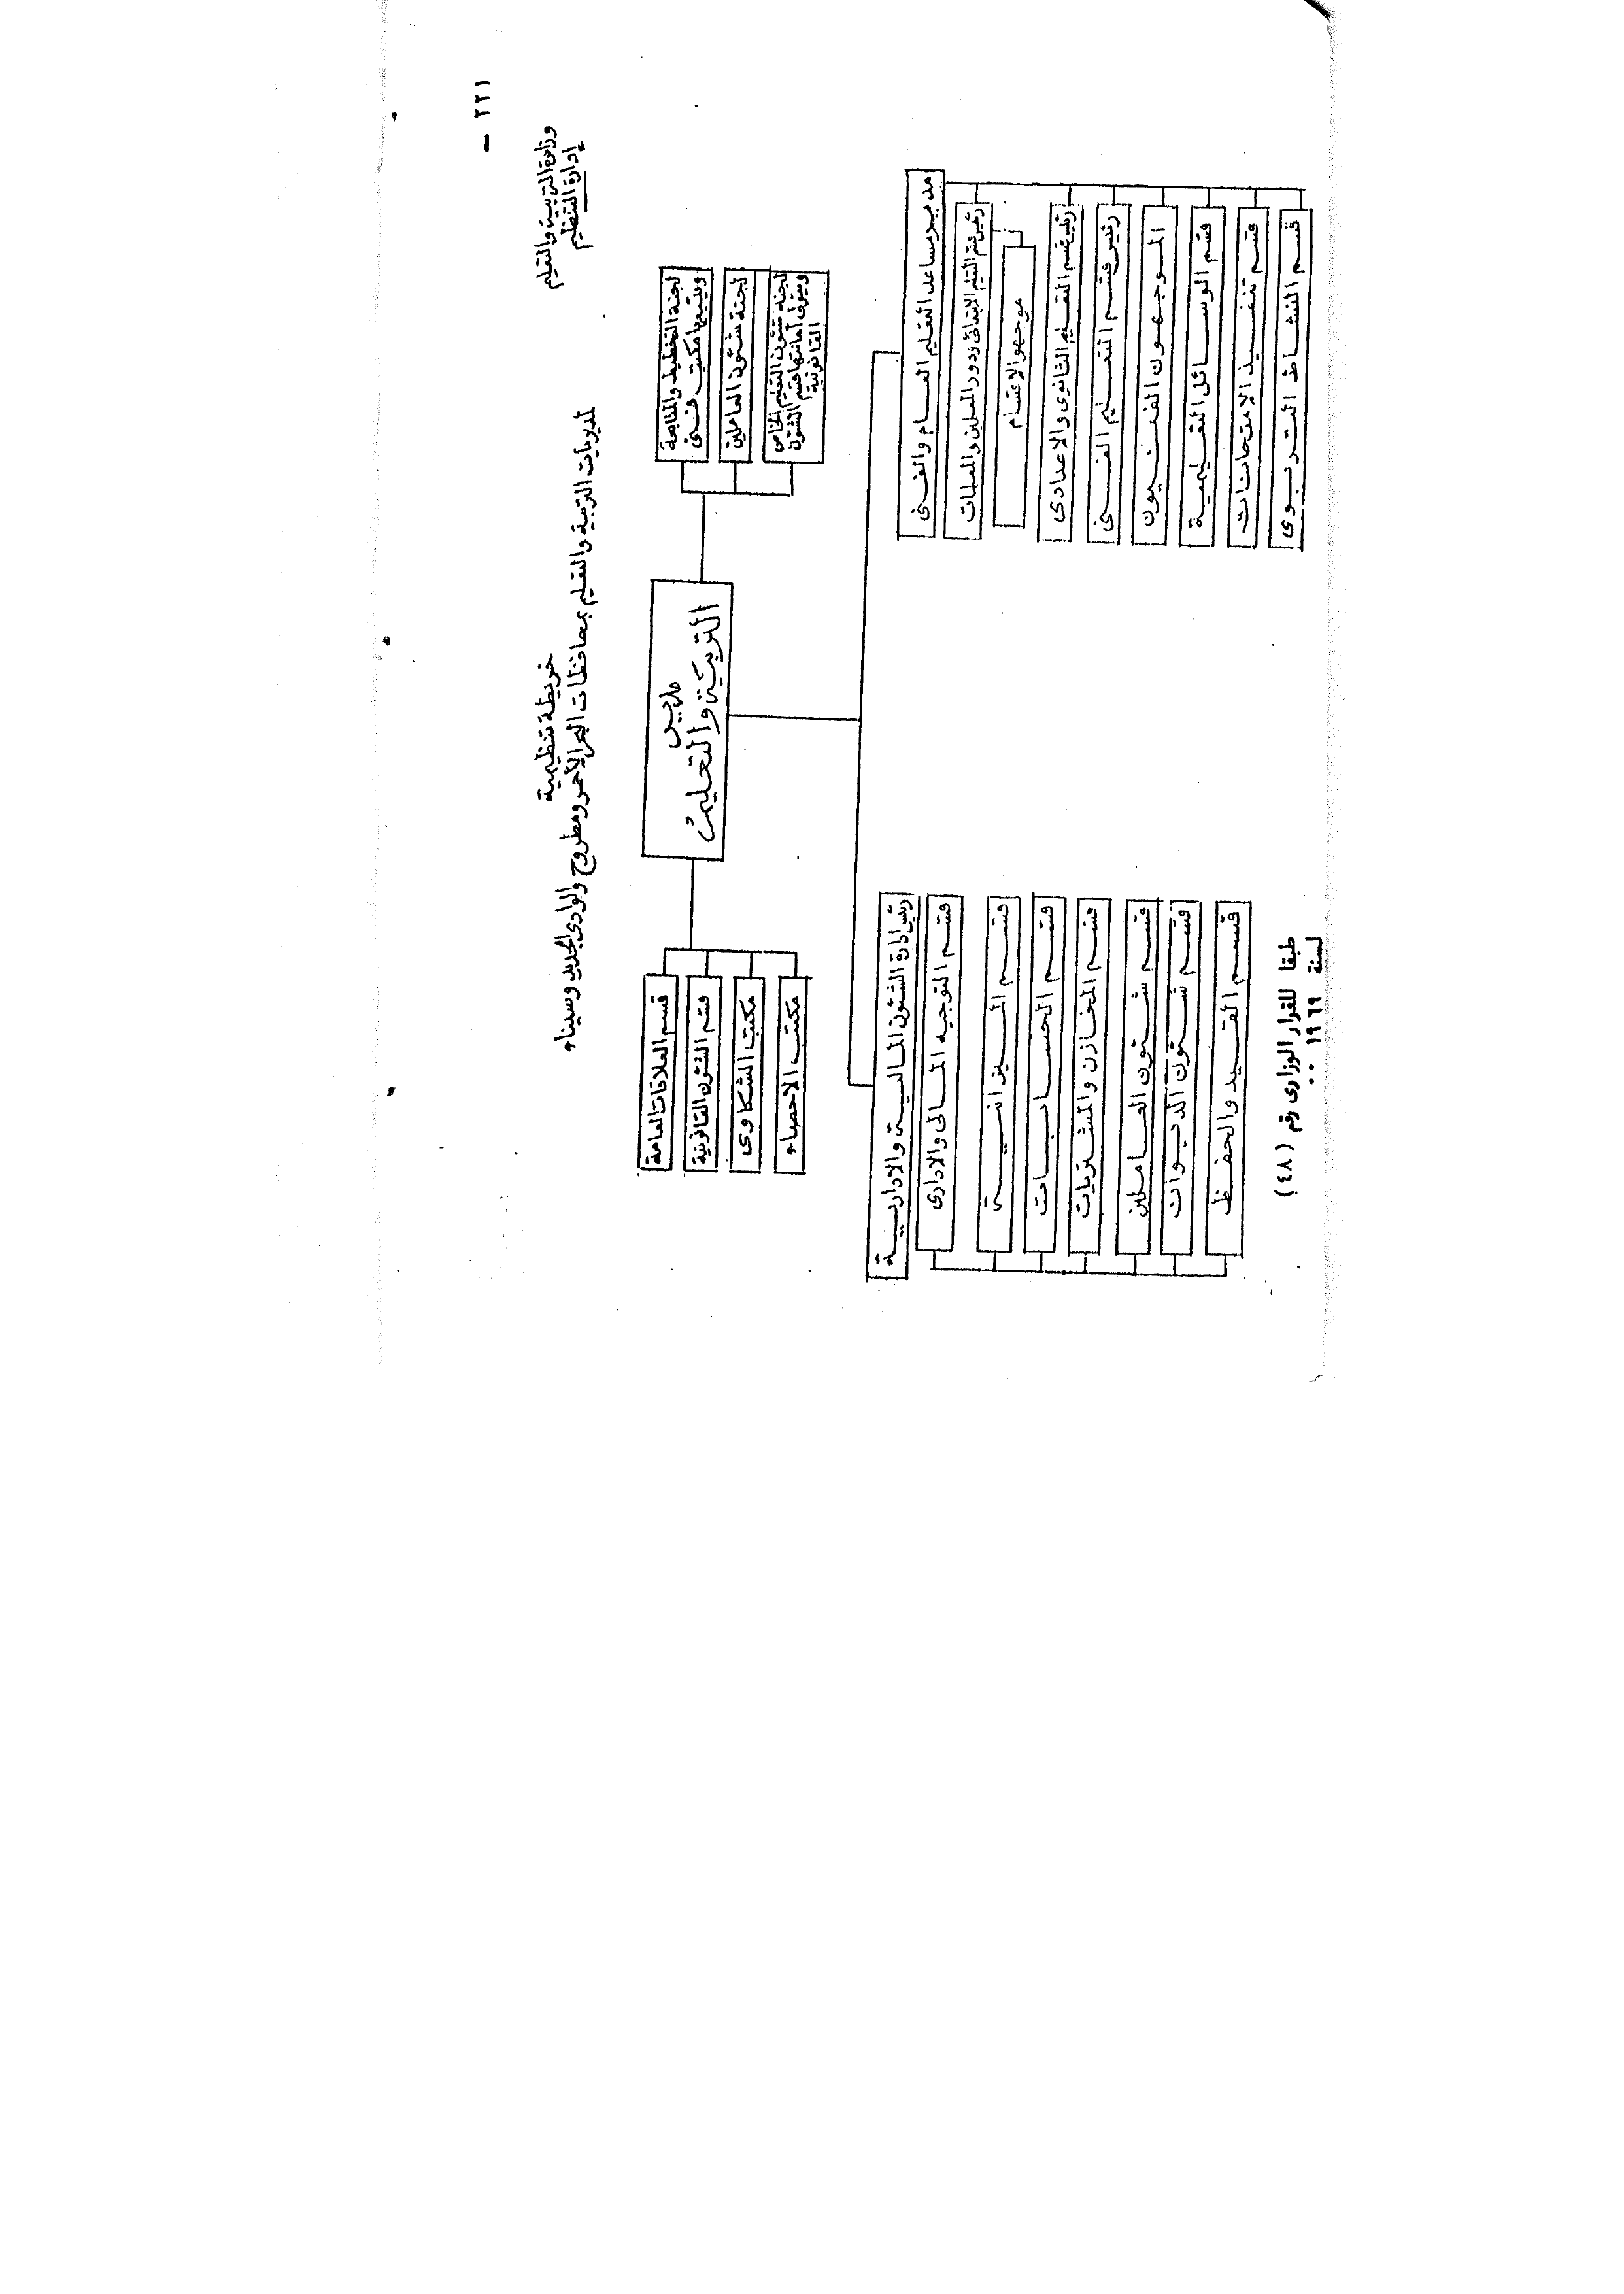 ٢٢١ —
وزارة التربية والتعليم
إدارة التنظيم
خريطة تنظيمية
لمديريات التربية والتعليم بمحافظات البحر الأحمر ومطروح والوادى الجديد وسيناء
لجنة التخطيط والمتابعة
ويتبعها مكتب فنى
لجنة شئون العاملين
لجنة شئون التعليم الخاص
ويتولى أمانتها قسم الشئون
القانونية
مدير
التربية والتعليم
قسم العلاقات العامة
قسم الشئون القانونية
مكتب الشكاوى
مكتب الاحصاء
مدير مساعد التعليم العام والفنى
رئيس قسم التعليم الابتدائى ودور المعلمين والمعلمات
موجهو الاقسام
رئيس قسم التعليم الثانوى والاعدادى
رئيس قسم التعليم الفنى
الموجهون الفنيون
قسم الوسائل التعليمية
قسم تنفيذ الامتحانات
قسم النشاط التربوى
رئيس ادارة الشئون المالية والادارية
قسم التوجيه المالى والادارى
قسم الميزانية
قسم الحسابات
قسم المخازن والمشتريات
قسم شئون العاملين
قسم شئون الديوان
قسم القيد والحفظ
طبقا للقرار الوزارى رقم (٤٨)
لسنة ١٩٦٩ ..